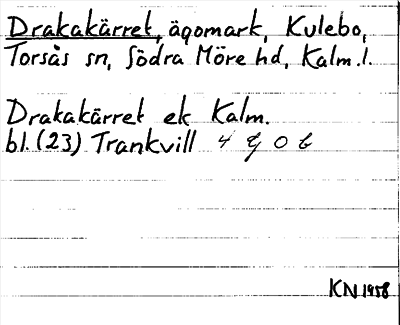 Drakakärret, ägomark, Kulebo,
Torsås sn, Södra Möre hd, Kalm.l.
Drakakärret ek Kalm.
bl. (23) Trankvill 4 G 0 b
KN 1958